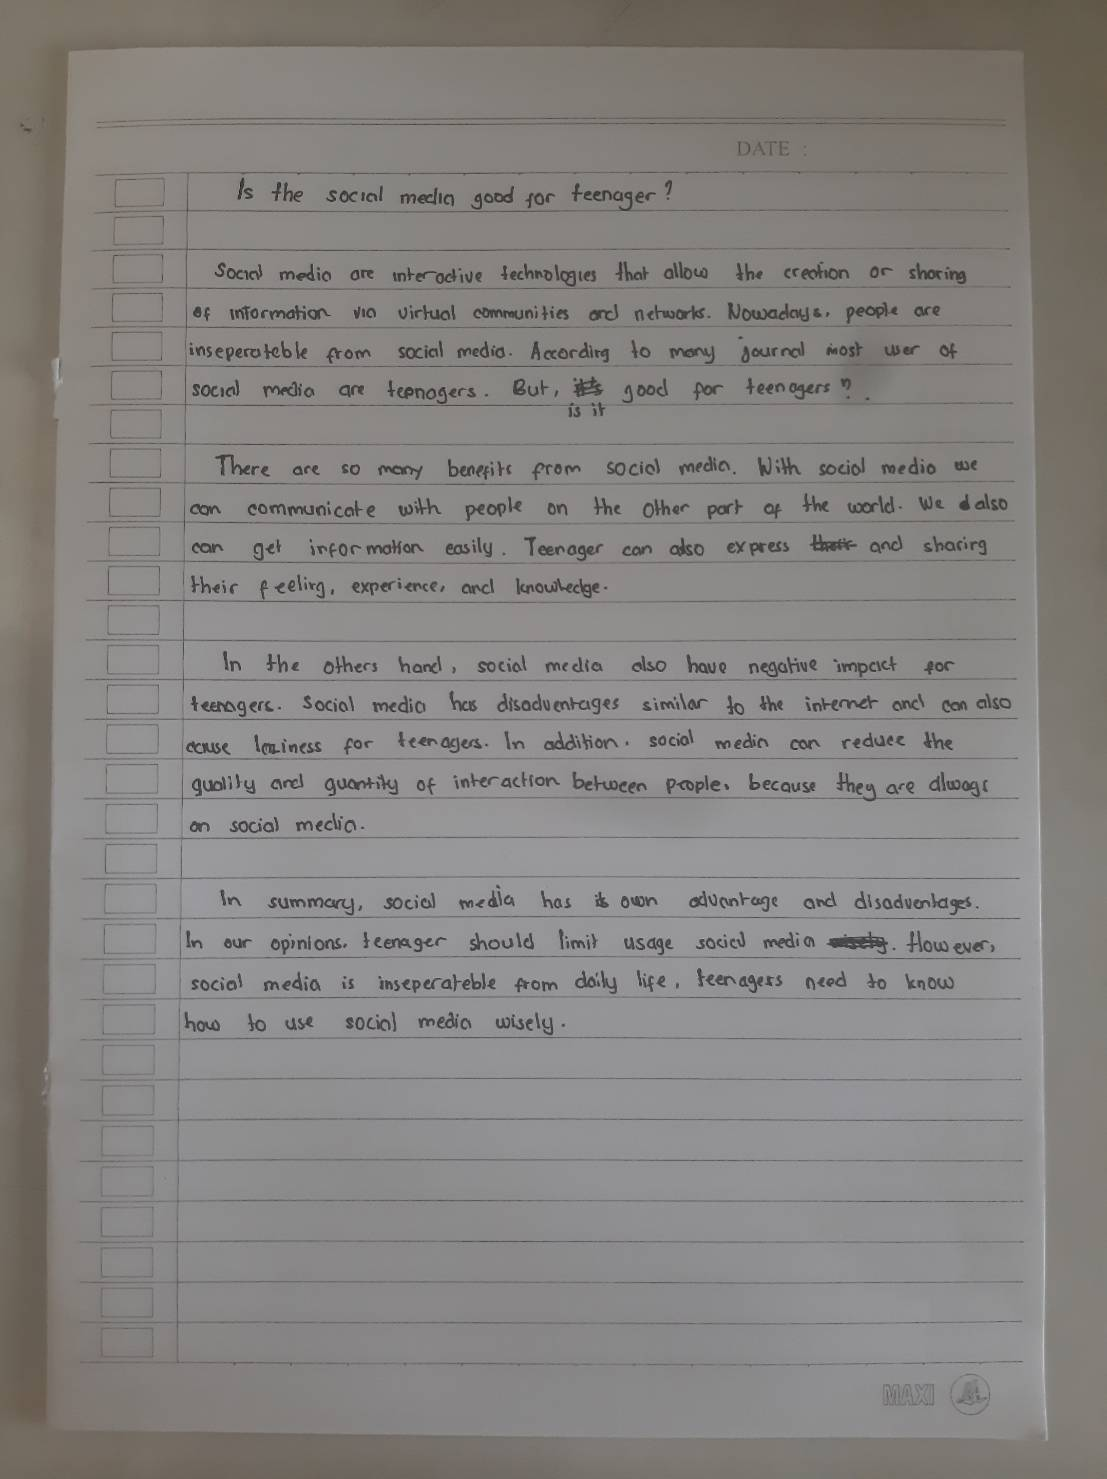 DATE :
Is the social media good for teenager?
Social media are interactive technologies that allow the creation or sharing
of information via virtual communities and networks. Nowadays, people are
inseperateble from social media. According to many journal most user of
social media are teenagers. But, is it good for teenagers?.
There are so many benefits from social media. With social media we
can communicate with people on the other part of the world. We also
can get information easily. Teenager can also express and sharing
their feeling, experience, and knowledge.
In the others hand, social media also have negative impact for
teenagers. Social media has disadventages similar to the internet and can also
cause laziness for teenagers. In addition, social media can reduce the
quality and quantity of interaction between people, because they are always
on social media.
In summary, social media has its own advantage and disadventages.
In our opinions, teenager should limit usage social media. However,
social media is inseperateble from daily life, teenagers need to know
how to use social media wisely.
MAXI